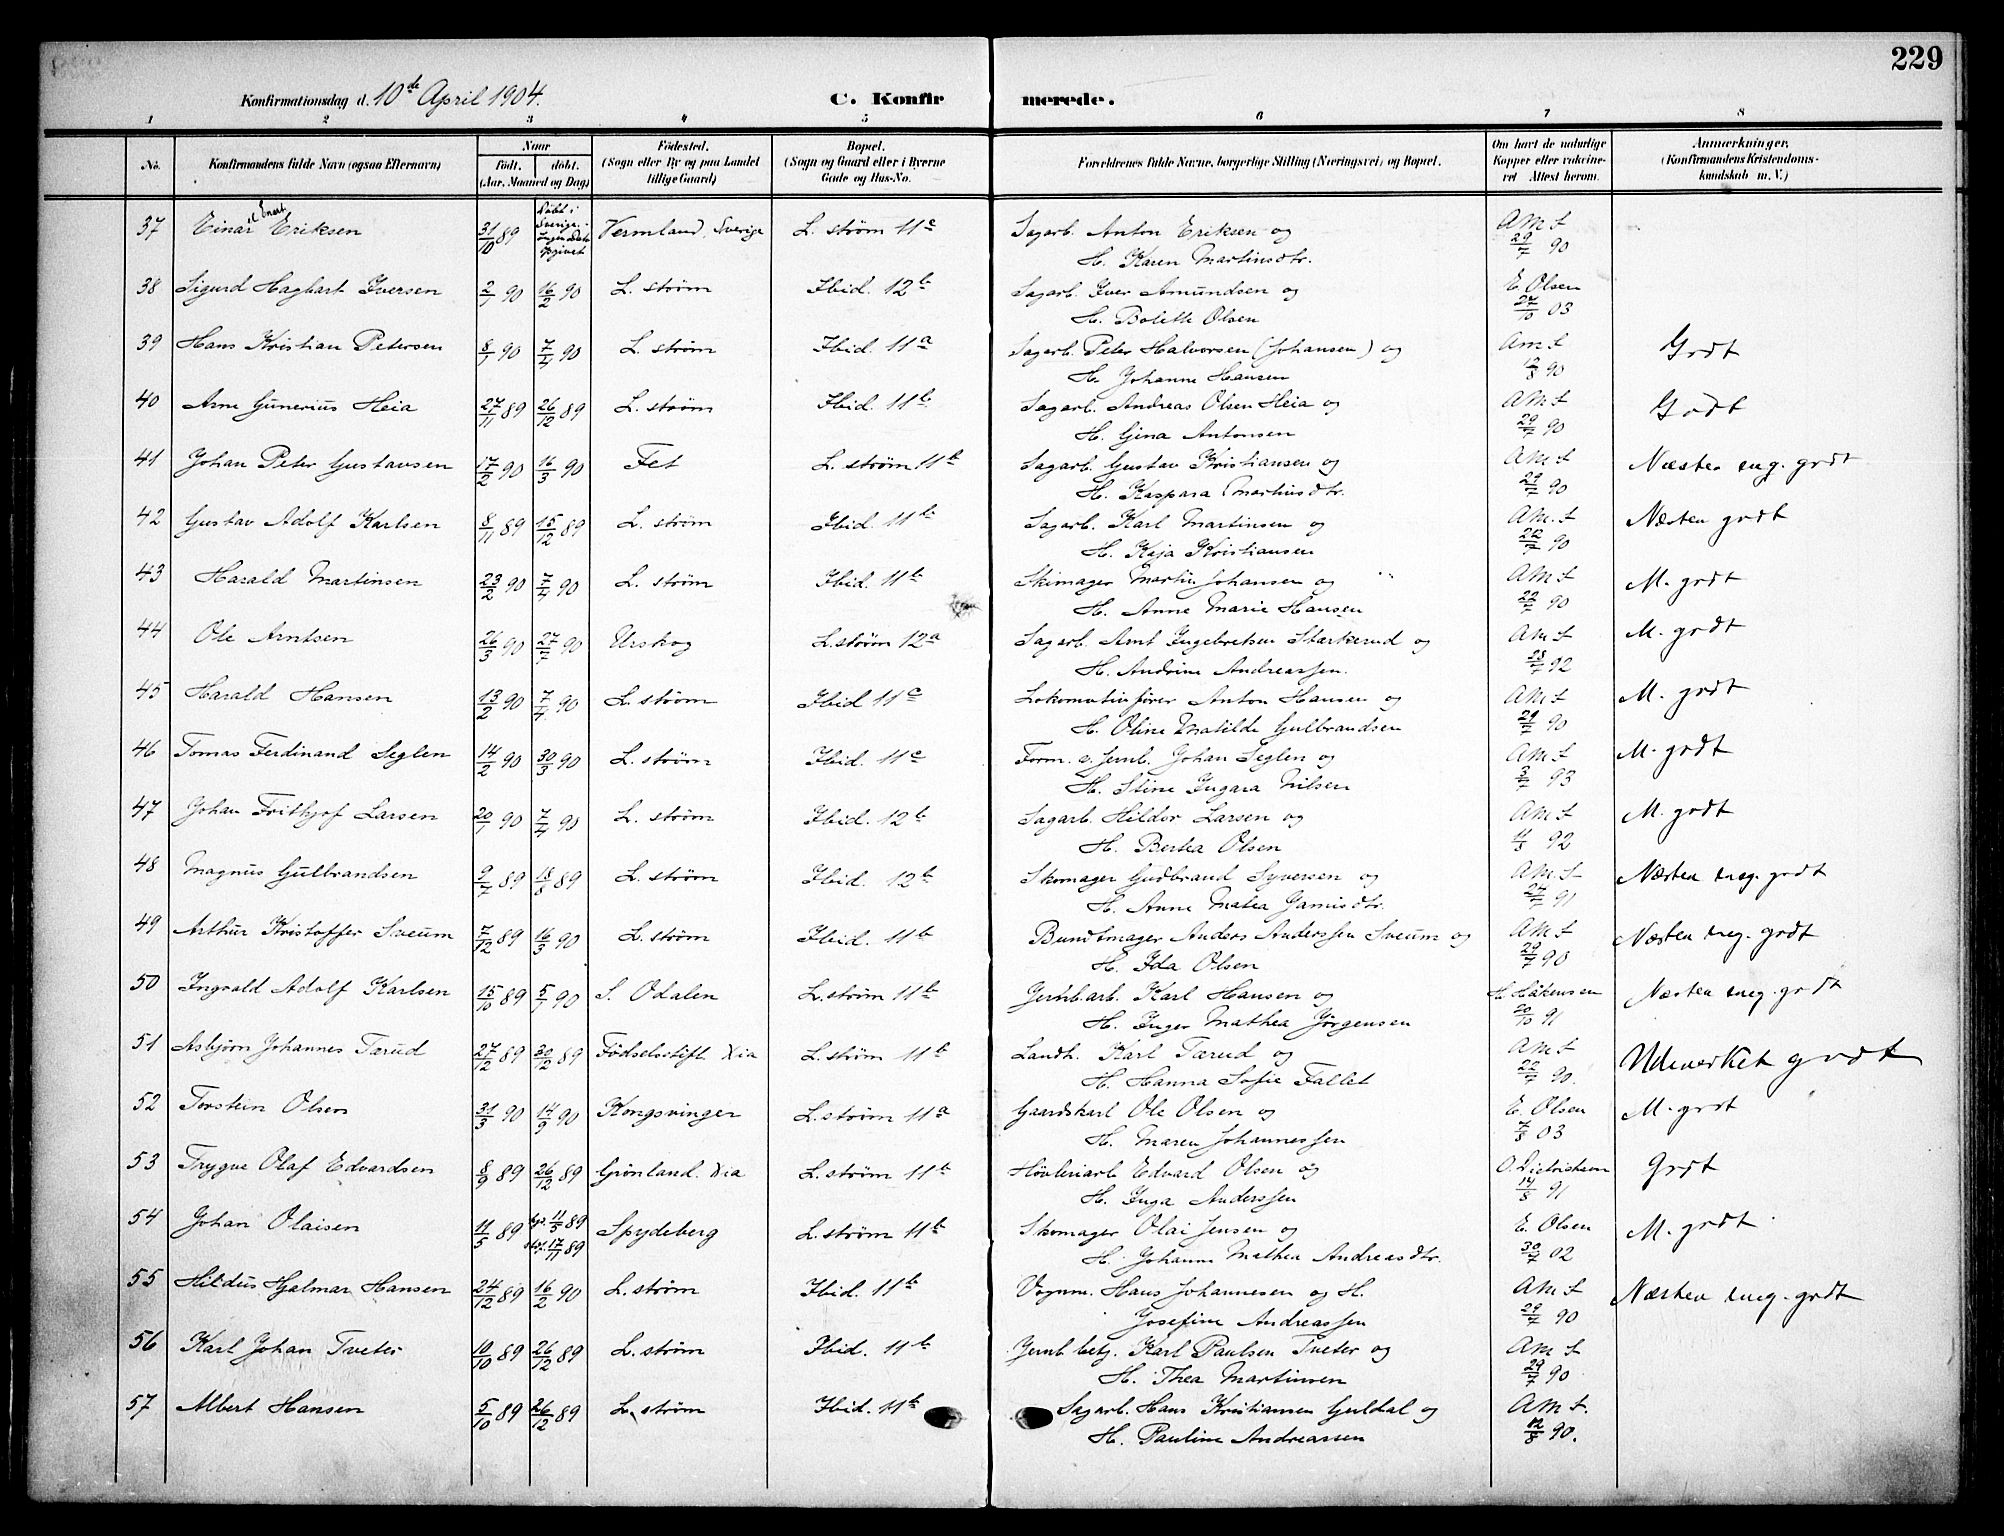 229
Konfirmationsdag d. 10de April 1904. C. Konfirmerede.
1 2 3 4 5 6 7 8
No. Konfirmandens fulde Navn (ogsaa Efternavn) Naar født. døbt. (Aar, Maaned og Dag) Fødested. (Sogn eller By og paa Landet tillige Gaard) Bopæl. (Sogn og Gaard eller i Byerne Gade og Hus-No. Forældrenes fulde Navne, borgerlige Stilling (Næringsvei) og Bopæl. Om havt de naturlige Kopper eller vakcineret Attest herom. Anmærkninger, (Konfirmandens Kristendomskundskab m. V.)
37 Einar Enart Eriksen 31/10 89 Døbt i Sverige. Vermland, Sverige L. strøm 11c Sagarb. Anton Eriksen og A M S
H. Karen Martinsdtr. 29/7 90
38 Sigurd Hagbart Iversen 2/1 90 16/2 90 L. strøm Ibid. 12b Sagarb. Iver Amundsen og E. Olsen
H. Bolette Olsen 27/10 03
39 Hans Kristian Petersen 8/1 90 7/4 90 L. strøm Ibid. 11a Sagarb. Peter Halvorsen (Johansen) og A M S Godt
H. Johanne Hansen 12/8 90
40 Arne Gunerius Heia 27/11 89 26/12 89 L. strøm Ibid. 11b Sagarb. Andreas Olsen Heia og A M S Godt
H. Gina Antonsen 29/7 90
41 Johan Peter Gustavsen 17/2 90 16/3 90 Fet L. strøm 11b Sagarb. Gustav Kristiansen og A M S Næsten meg. godt
H. Kaspara Martinsdtr. 29/7 90
42 Gustav Adolf Karlsen 8/11 89 15/12 89 L. strøm Ibid. 11b Sagarb. Karl Martinsen og A M. S Næsten godt
H. Kaja Kristiansen 22/7 90
43 Harald Martinsen 23/2 90 7/4 90 L. strøm Ibid. 11b Skimager Martin Johansen og A M S M. godt
H. Anne Marie Hansen 22/7 90
44 Ole Arntsen 26/3 90 27/7 90 Urskog L. strøm 12a Sagarb. Arnt Ingebretsen Stærkerud og A M S M. godt
H. Andrine Andreassen. 28/7 92
45 Harald Hansen 13/2 90 7/4 90 L. strøm Ibid 11c Lokomotivfører Anton Hansen og A M S M. godt
H. Oline Matilde Gulbrandsen 29/7 90
46 Tomas Ferdinand Seglen 14/2 90 30/3 90 L. strøm Ibid. 11c Form. v. Jernb. Johan Seglen og A M S M. godt
H. Stine Ingara Nilsen 3/7 93
47 Johan Frithjof Larsen 20/1 90 7/4 90 L. strøm Ibid. 12b Sagarb. Hildor Larsen og A M S M. godt
H. Bertea Olsen 11/8 92
48 Magnus Gulbrandsen 9/7 89 18/8 89 L. strøm Ibid. 12b Skomager Gudbrand Syversen og A M. S Næsten meg. godt
H. Anne Matea 27/7 91
49 Arthur Kristoffer Sveum 7/12 89 16/3 90 L. strøm Ibid. 11b Bundtmager Anders Anderssen Sveum og A M S Næsten meg. godt
H. Ida Olsen 29/7 90
50 Ingvald Adolf Karlsen 15/10 89 5/1 90 S. Odalen L. strøm 11b Jernb. arb. Karl Hansen og H. Håkensen Næsten meg. godt
H. Inger Mathea Jørgensen 20/10 91
51 Asbjørn Johannes Tærud 27/12 89 30/12 89 Fødselsstift. Xia L. strøm 11b Landh. Karl Tærud og A M S Udmerket godt
H. Hanna Sofie Fallet 22/7 90.
52 Torstein Olsen 31/3 90 14/9 90 Kongsvinger L. strøm 11a Gaardskarl Ole Olsen og E. Olsen M. godt
H. Maren Johannessen 7/8 03
53 Trygve Olaf Edvardsen 8/9 89 26/12 89 Grønland. Xia L. strøm 11b Høvleriarb Edvard Olsen og O. Dietrichson Godt
H. Inga Anderssen 14/8 91
54 Johan Olaisen 11/5 89 11/5 89 Spydeberg L. strøm 11b Skomager Olai Jensen og E. Olsen M. godt
17/11 89 H. Johanne Mathea Andreasdtr. 30/7 02
55 Hildus Hjalmar Hansen 24/12 89 16/2 90 L. strøm Ibid. 11b Vognm. Hans Johannesen og H. A M S Næsten meg. godt
Josefine Andreassen 29/7 90
56 Karl Johan Tveter 10/10 89 26/12 89 L. strøm Ibid. 11b Jernb betj. Karl Paulsen Tveter og A M S
H. Thea Martinsen 29/7 90
57 Albert Hansen 5/10 89 26/12 89 L. strøm Ibid. 11b Sagarb. Hans Kristiansen Guldal og A M S.
H. Pauline Andreassen 12/8 90.